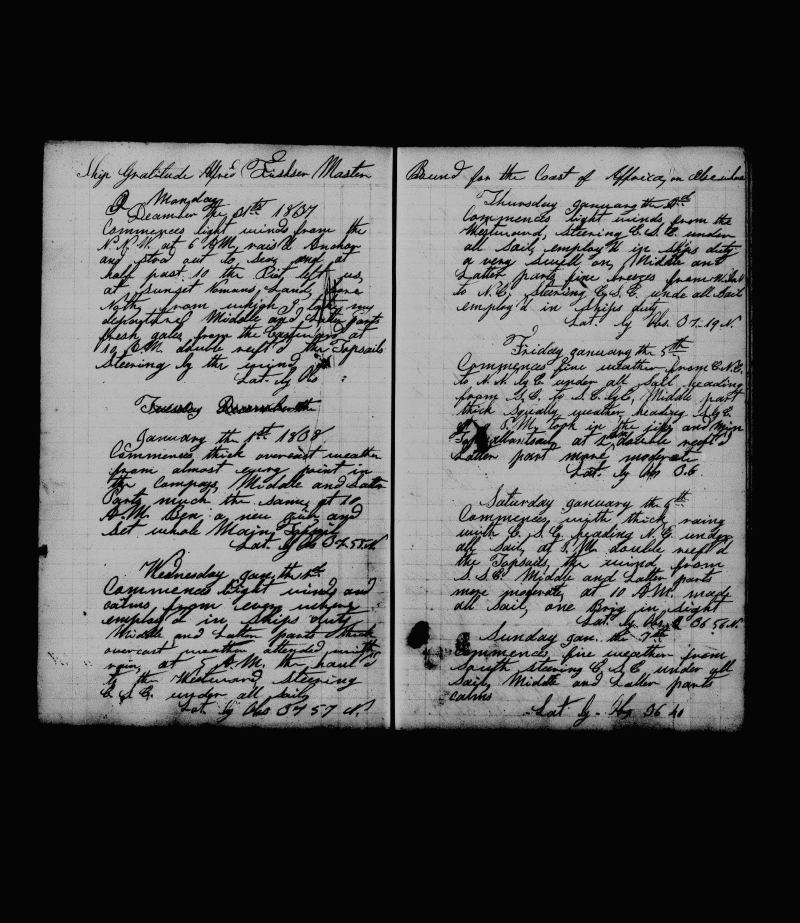 Ship Gratitude Alfred Fishser Master
Monday
December the 31th 1837
Commences light winds from the
N.N.W. at 6 A.M. rais'd Anchor
and stood out to sea, and at
half past 10 the Pilot left us,
at sunset Romans, Land, bore
North from which I take my
departure. Middle and Latter parts
fresh gales from the at
10 P.M. double reef'd the Topsails
Steering by the wind
Lat. by Obs
Tuesday December the
January the 1st 1838
Commences thick overcast weather
from almost every point in
the Compass, Middle and Latter
Parts much the same, at 10
A.M. Ben a new and
set whole Main Topsail
Lat. by Obs 37
Wednesday Jan. the
Commences Light winds and
calms, from every where
employ'd in ships duty
Middle and Latter parts thick
overcast weather attended with
rain, at 5 A.M. the haul'd
to the Westward Steering
E. S. E. under all sail
Lat. by Obs 37 57 N.
Bound for the Coast of Affrica, or elsewhere
Thursday January the
Commences light winds from the
Westward, steering E.S.E. under
all sail, employ'd in ships duty
a very swell on, Middle and
Latter parts fine breezes from
to N.E. Steering E.S.E. unde all Sail
employ'd in ships duty
Lat. by Obs. 37.19 N.
Friday January the 5th
Commences fine weather, from E.N.E.
to N.N. by E. under all sail heading
from S.E. to S.E. by E, Middle part
thick Squaly weather, heading S. by E.
P.M. took in the jibs and Main
Top gallantsails, at double reef'd
Latter part more moderate
Lat. by Obs 36
Saturday January the 6th
Commences with thick rainy
with E. S. E. heading N.E. under
all sail, at P.M. double reef'd
the Topsails, the wind from
S.S.E. Middle and Latter parts
more moderate, at 10 A.M. made
all sail, one Brig in sight
Lat. by Obs 36 56 N.
Sunday Jan. the 7th
Commences fine weather from
South steering E.S.E under all
sail, Middle and Latter parts
calms
Lat by. Obs 36 40